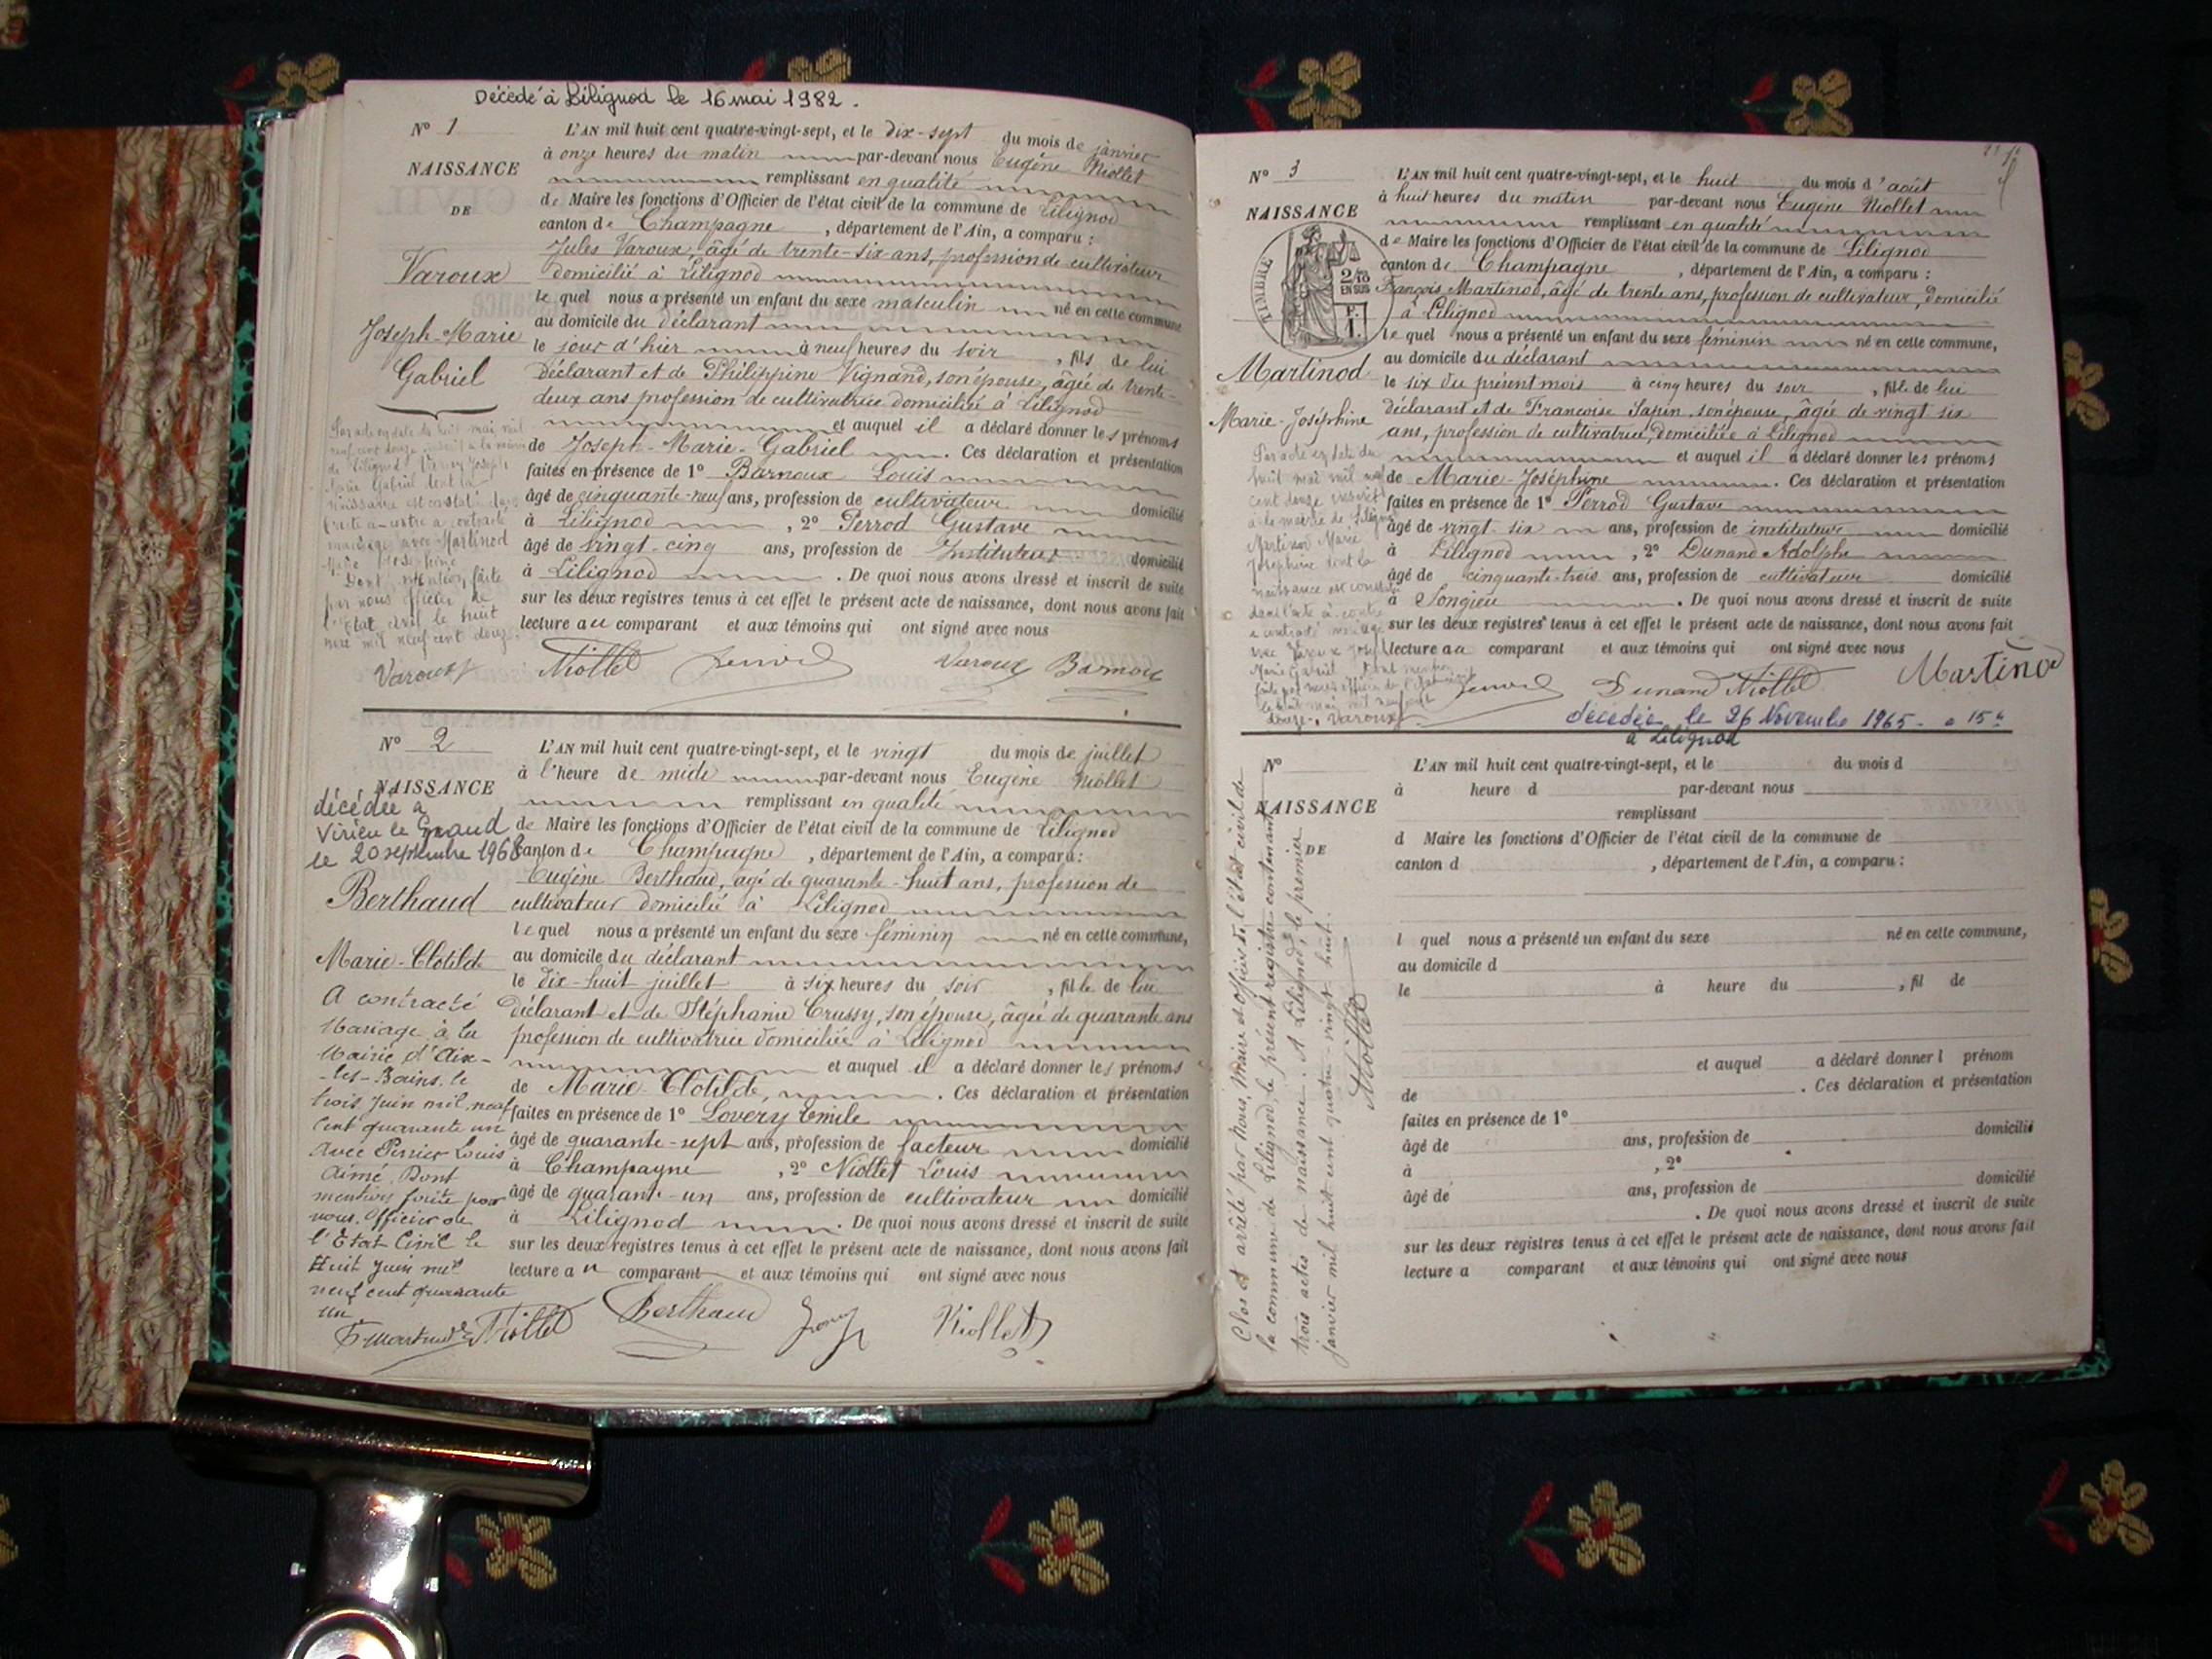 Décédé à Lilignod le 16 mai 1982.
N° 1
NAISSANCE
DE
Varoux
Joseph-Marie
Gabriel
L'AN mil huit cent quatre-vingt-sept, et le dix-sept du mois de janvier
à onze heures du matin par-devant nous Eugène Niollet
remplissant en qualité
de Maire les fonctions d'Officier de l'état civil de la commune de Lilignod
canton de Champagne, département de l'Ain, a comparu :
Jules Varoux, âgé de trente-six ans, profession de cultivateur
domicilié à Lilignod
lequel nous a présenté un enfant du sexe masculin né en cette commune
au domicile du déclarant
le jour d'hier à neuf heures du soir, fils de lui
déclarant et de Philippine Vignand, son épouse, âgée de trente-
deux ans profession de cultivatrice domiciliée à Lilignod
et auquel il a déclaré donner les prénoms
de Joseph-Marie-Gabriel. Ces déclaration et présentation
faites en présence de 1° Barnoux Louis
âgé de cinquante-neuf ans, profession de cultivateur domicilié
à Lilignod, 2° Perrod Gustave
âgé de vingt-cinq ans, profession de Instituteur domicilié
à Lilignod. De quoi nous avons dressé et inscrit de suite
sur les deux registres tenus à cet effet le présent acte de naissance, dont nous avons fait
lecture au comparant et aux témoins qui ont signé avec nous
Par acte en date du huit mai mil
neuf cent douze inscrit à la mairie
de Lilignod Varoux Joseph
Marie Gabriel dont la
naissance est constatée dans
l'acte ci-contre a contracté
mariage avec Martinod
Marie Joséphine
Dont mention faite
par nous officier de
l'état civil le huit
mai mil neuf cent douze.
Varoux Niollet Varoux Barnoux
N° 2
NAISSANCE
décédée à
Virieu le Grand
le 20 septembre 1968
Berthaud
Marie-Clotilde
A contracté
Mariage à la
Mairie d'Aix-
-les-Bains, le
trois Juin mil neuf
cent quarante un
avec Perrier Louis
Aimé. Dont
mention faite par
nous, Officier de
l'Etat Civil le
Huit Juin mil
neuf cent quarante
un
L'AN mil huit cent quatre-vingt-sept, et le vingt du mois de juillet
à l'heure de midi par-devant nous Eugène Niollet
remplissant en qualité
de Maire les fonctions d'Officier de l'état civil de la commune de Lilignod
canton de Champagne, département de l'Ain, a comparu :
Eugène Berthaud, âgé de quarante-huit ans, profession de
cultivateur domicilié à Lilignod
lequel nous a présenté un enfant du sexe féminin né en cette commune,
au domicile du déclarant
le dix-huit juillet à six heures du soir, fille de lui
déclarant et de Stéphanie Crussy, son épouse, âgée de quarante ans
profession de cultivatrice domiciliée à Lilignod
et auquel il a déclaré donner les prénoms
de Marie Clotilde, Ces déclaration et présentation
faites en présence de 1° Lovery Emile
âgé de quarante-sept ans, profession de facteur domicilié
à Champagne, 2° Niollet Louis
âgé de quarante-un ans, profession de cultivateur domicilié
à Lilignod. De quoi nous avons dressé et inscrit de suite
sur les deux registres tenus à cet effet le présent acte de naissance, dont nous avons fait
lecture au comparant et aux témoins qui ont signé avec nous
Niollet Berthaud Niollet
N° 3
NAISSANCE
TIMBRE
2/10
EN SUS
Martinod
Marie-Joséphine
L'AN mil huit cent quatre-vingt-sept, et le huit du mois d'août
à huit heures du matin par-devant nous Eugène Niollet
remplissant en qualité
de Maire les fonctions d'Officier de l'état civil de la commune de Lilignod
canton de Champagne, département de l'Ain, a comparu :
François Martinod, âgé de trente ans, profession de cultivateur, domicilié
à Lilignod
lequel nous a présenté un enfant du sexe féminin né en cette commune,
au domicile du déclarant
le six du présent mois à cinq heures du soir, fille de lui
déclarant et de Françoise Sapin, son épouse, âgée de vingt six
ans, profession de cultivatrice, domiciliée à Lilignod
et auquel il a déclaré donner les prénoms
de Marie-Joséphine. Ces déclaration et présentation
faites en présence de 1° Perrod Gustave
âgé de vingt six ans, profession de instituteur domicilié
à Lilignod, 2° Dunand Adolphe
âgé de cinquante-trois ans, profession de cultivateur domicilié
à Songieu. De quoi nous avons dressé et inscrit de suite
sur les deux registres tenus à cet effet le présent acte de naissance, dont nous avons fait
lecture au comparant et aux témoins qui ont signé avec nous
Par acte en date du
huit mai mil neuf
cent douze inscrit
à la mairie de Lilignod
Martinod Marie
Joséphine dont la
naissance est constatée
dans l'acte ci-contre
a contracté mariage
avec Varoux Joseph
Marie Gabriel dont mention
faite par nous officier de l'état civil
le huit mai mil neuf cent
douze. Varoux
Dunand Niollet Martinod
décédée le 26 Novembre 1965 - à 15h
à Lilignod
N°
NAISSANCE
DE
L'AN mil huit cent quatre-vingt-sept, et le du mois d
à heure d par-devant nous
remplissant
d Maire les fonctions d'Officier de l'état civil de la commune de
canton d, département de l'Ain, a comparu :
l quel nous a présenté un enfant du sexe né en cette commune,
au domicile d
le à heure du, fil de
et auquel a déclaré donner l prénom
de. Ces déclaration et présentation
faites en présence de 1°
âgé de ans, profession de domicilié
à, 2°
âgé de ans, profession de domicilié
. De quoi nous avons dressé et inscrit de suite
sur les deux registres tenus à cet effet le présent acte de naissance, dont nous avons fait
lecture a comparant et aux témoins qui ont signé avec nous
Clos et arrêté par Nous, Maire et officier de l'état civil de
la commune de Lilignod, le présent registre contenant
trois actes de naissance. A Lilignod, le premier
janvier mil huit cent quatre-vingt huit.
Niollet